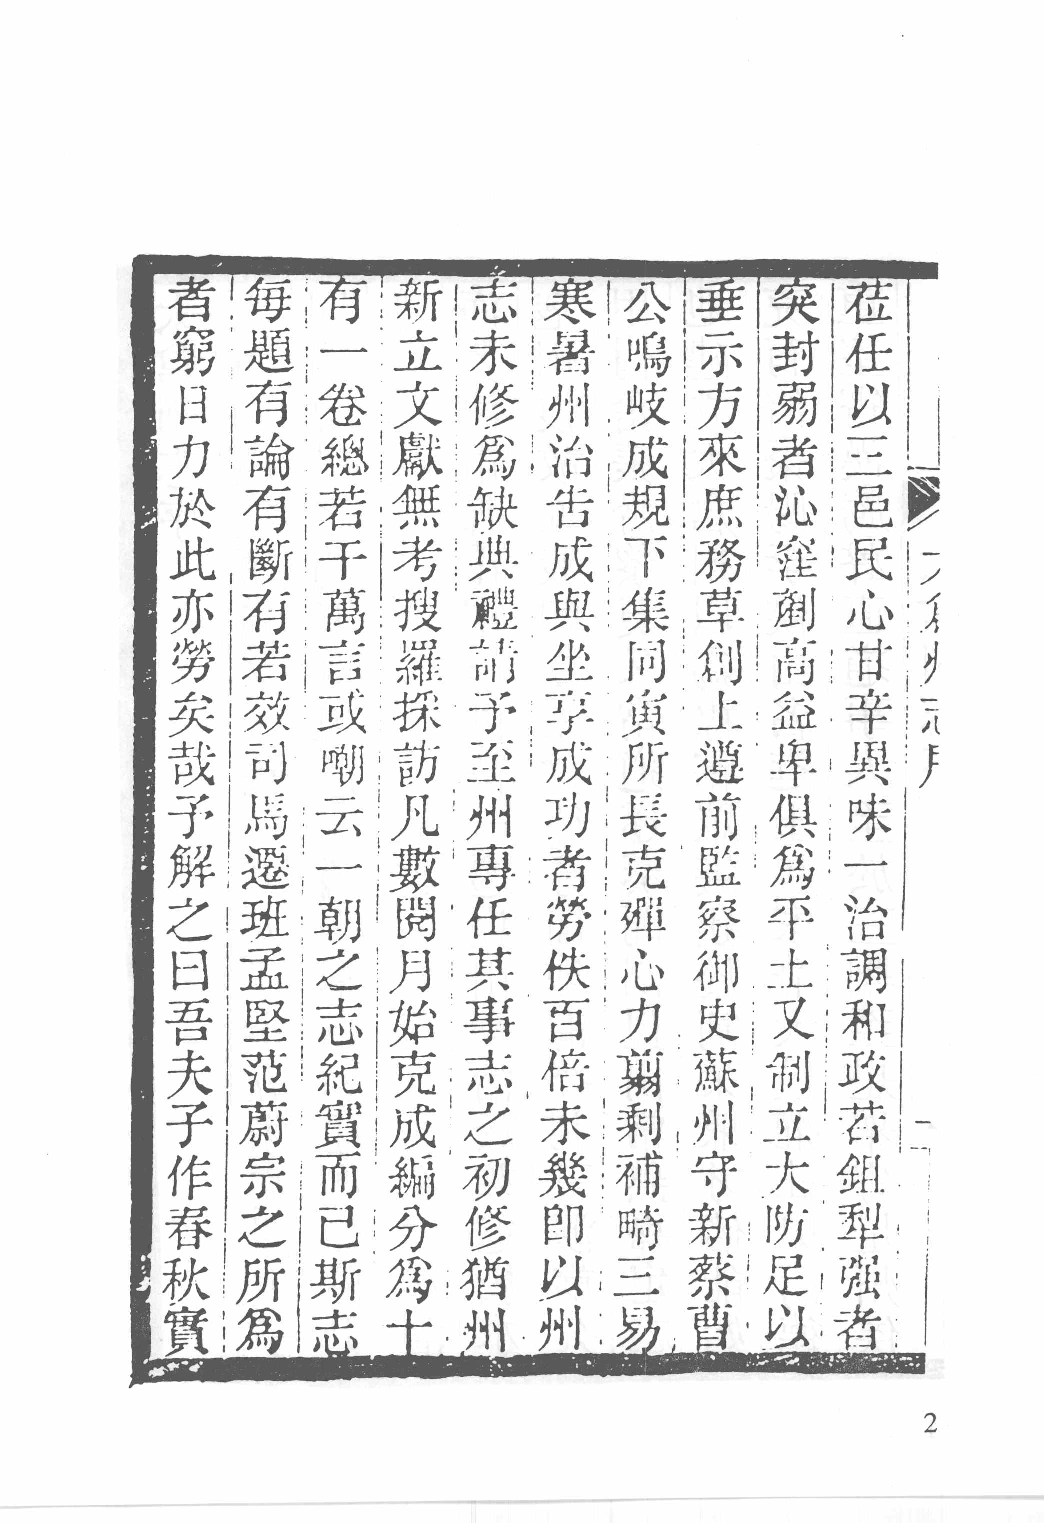 蒞任以三邑民心甘辛異味一治調和政若鉏犁强者
突封弱者沁窪剷高益卑俱爲平土又制立大防足以
垂示方來庶務草創上遵前監察御史蘇州守新蔡曹
公鳴岐成規下集同寅所長克殫心力剪剩補畸三易
寒暑州治告成與坐享成功者勞佚百倍未幾即以州
志未修爲缺典禮請予至州專任其事志之初修猶州
新立文獻無考搜羅採訪凡數閱月始克成編分爲十
有一卷總若干萬言或嘲云一朝之志紀實而已斯志
每題有論有斷有若效司馬遷班孟堅范蔚宗之所爲
者窮日力於此亦勞矣哉予解之曰吾夫子作春秋實
州志
2